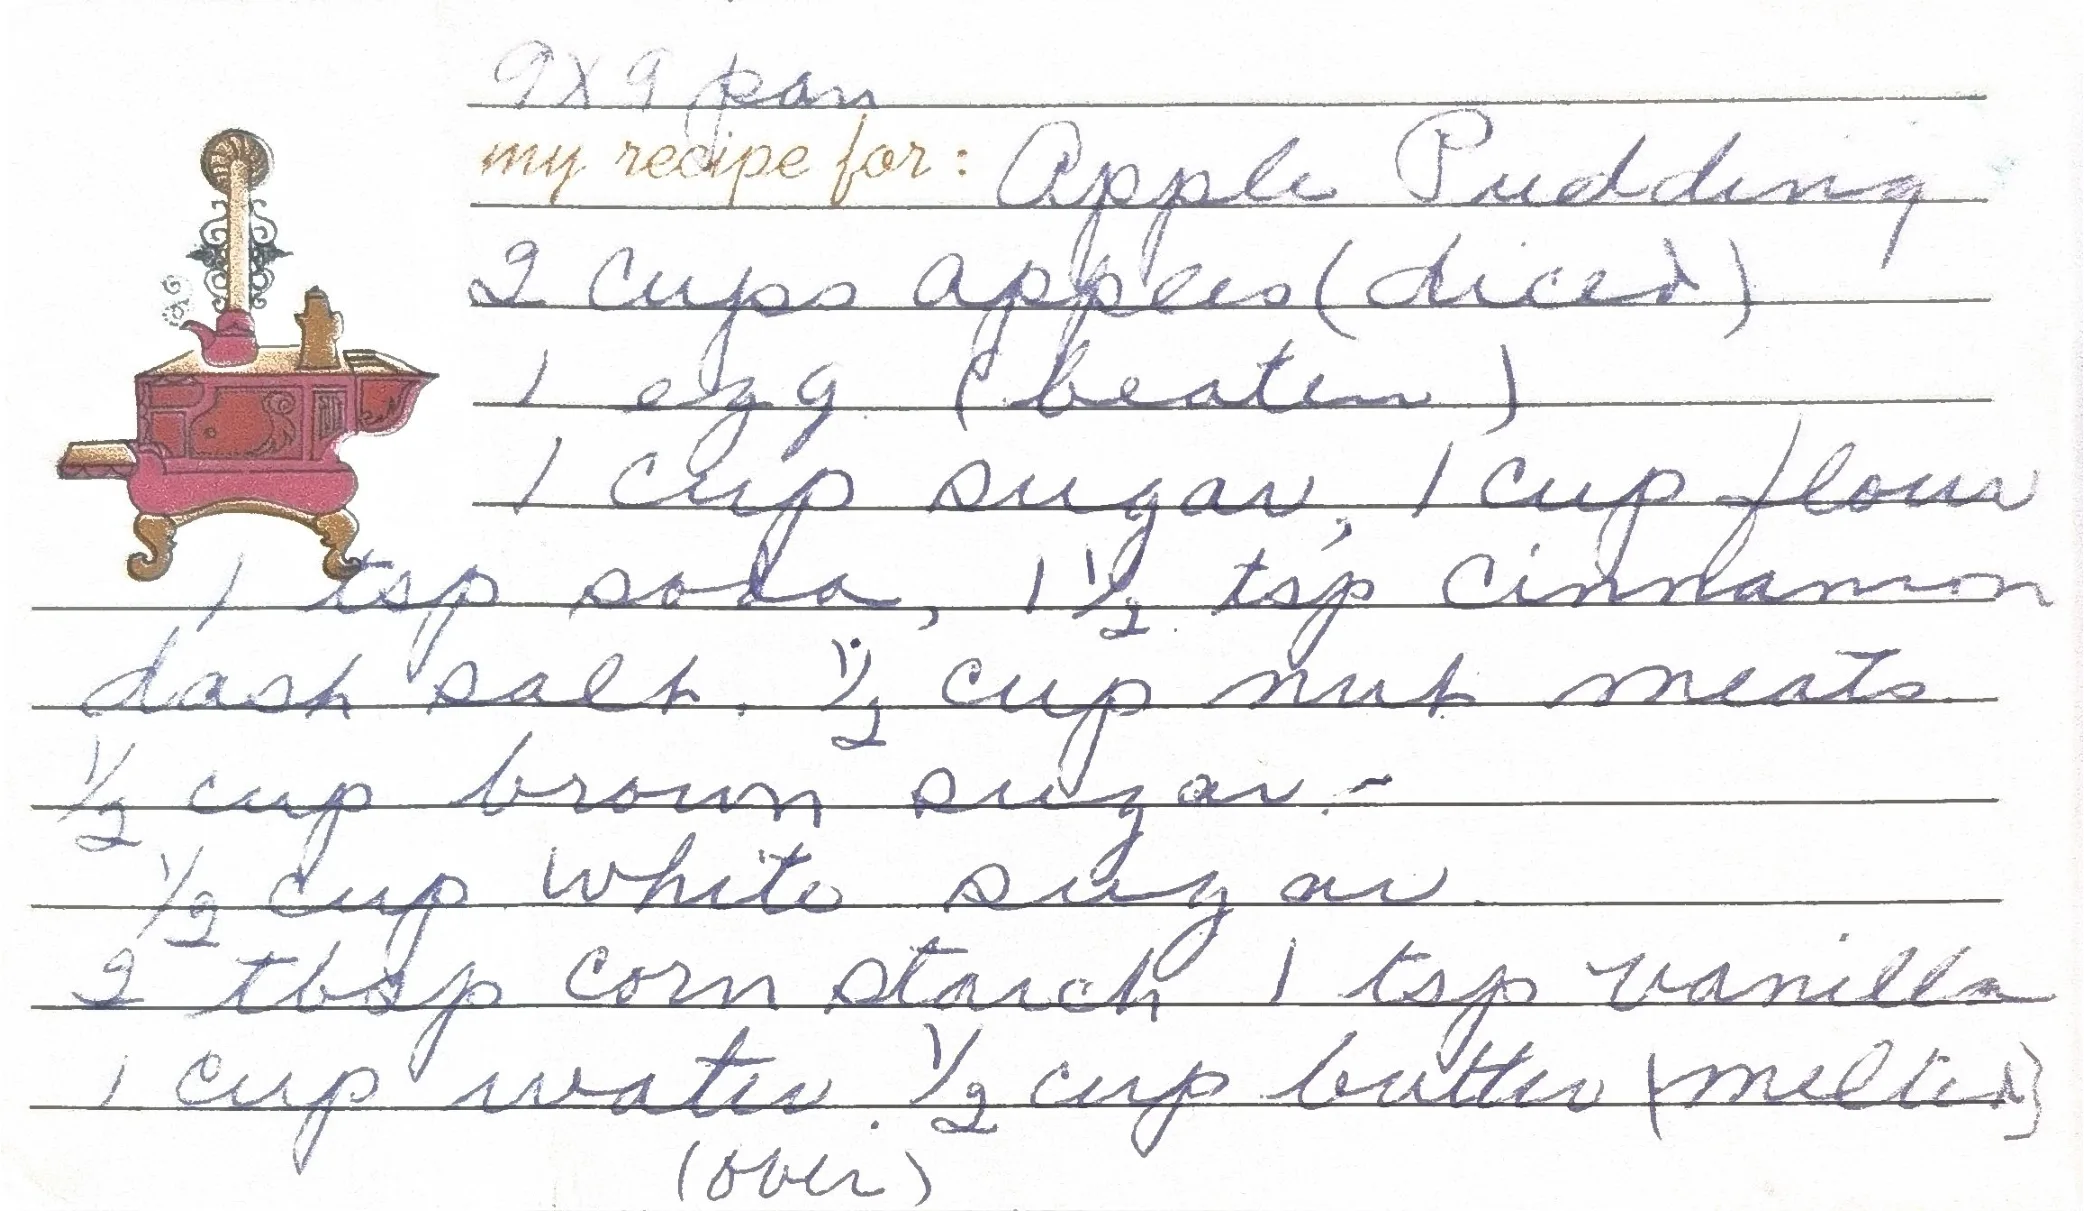 9x9 pan
my recipe for: Apple Pudding
2 cups apples (diced)
1 egg (beaten)
1 cup sugar, 1 cup flour
1 tsp soda, 1 1/2 tsp cinnamon
dash salt. 1/2 cup nut meats
1/2 cup brown sugar.-
1/2 cup white sugar.
2 tbsp corn starch 1 tsp vanilla
1 cup water. 1/2 cup butter (melted)
(over)